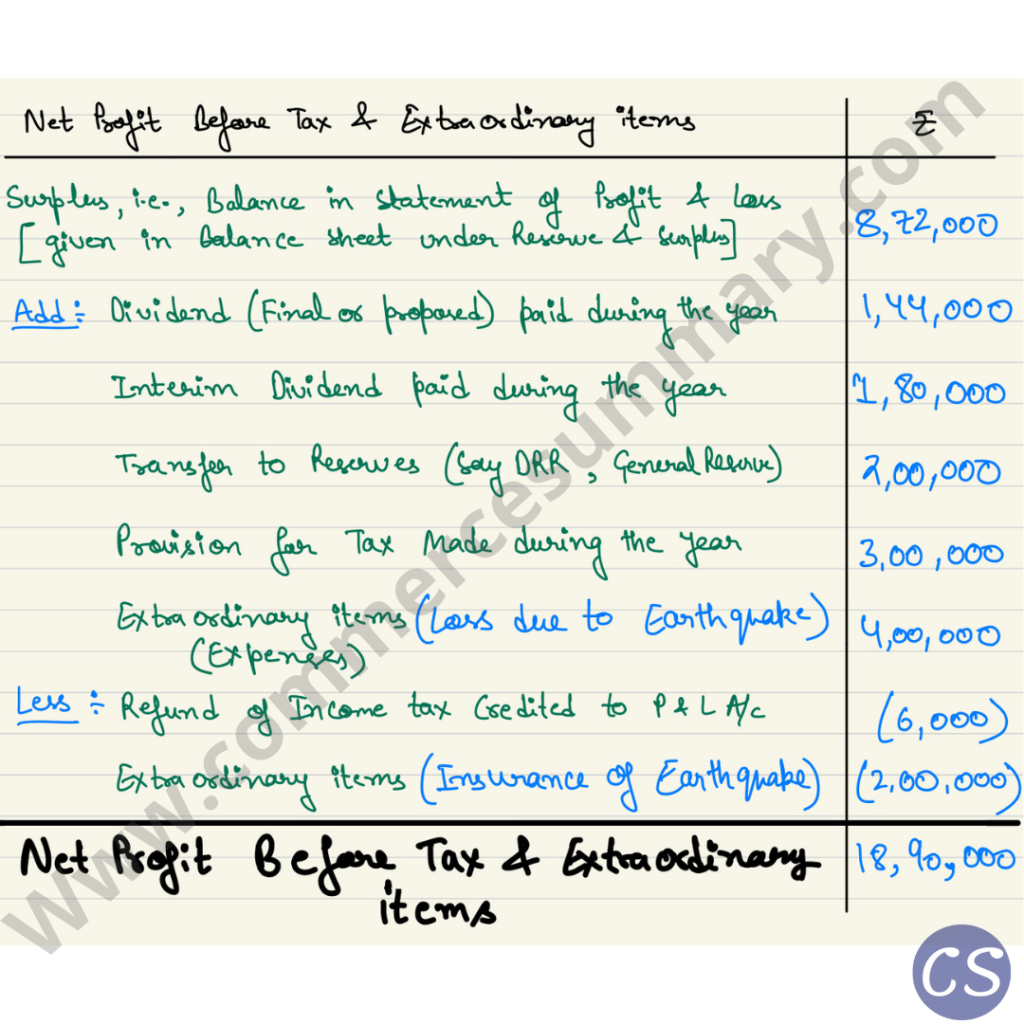 Net Profit Before Tax & Extraordinary items ₹
Surplus, i.e., Balance in Statement of Profit & Loss
[given in Balance sheet under Reserve & Surplus] 8,72,000
Add :- Dividend (Final or proposed) paid during the year 1,44,000
Interim Dividend paid during the year 1,80,000
Transfer to Reserves (Say DRR, General Reserve) 2,00,000
Provision for Tax Made during the year 3,00,000
Extraordinary items (Loss due to Earthquake) 4,00,000
(Expenses)
Less :- Refund of Income tax Credited to P & L A/c (6,000)
Extraordinary items (Insurance of Earthquake) (2,00,000)
Net Profit Before Tax & Extraordinary 18,90,000
items
www.commercesummary.com
CS